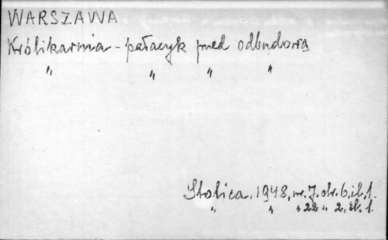 WARSZAWA
Królikarnia - pałacyk przed odbudową
" " " "
Stolica, 1948, nr. 7. str. 6. il. 1.
" " " 22 " 2. il. 1.